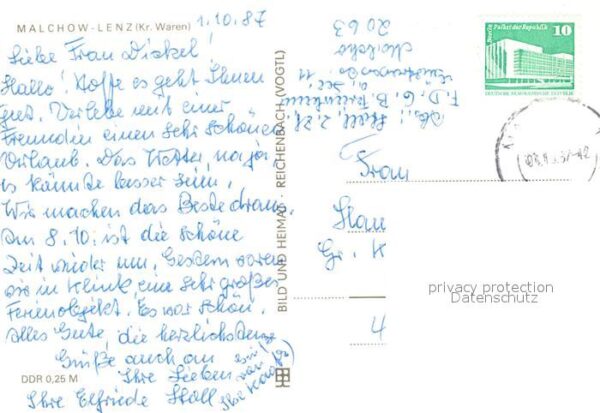 MALCHOW-LENZ (Kr. Waren)
1.10.87
Liebe Frau Dickel!
Hallo! Hoffe es geht Ihnen
gut. Verlebe mit einer
Freundin einen sehr schönen
Urlaub. Das Wetter, na ja
es könnte besser sein,
Wir machen das Beste draus.
Am 8.10. ist die schöne
Zeit wieder um. Gestern waren
wir in Klink, eine sehr großes
Ferienobjekt. Es war schön.
Alles Gute die herzlichsten
Grüße auch an
Ihre Lieben
Ihre Elfriede Stoll
DDR 0,25 M
BILD UND HEIMAT REICHENBACH (VOGTL)
Abs.: Stoll, z.Zt.
F.D.G.B.
Malchow
2063
Berlin Palast der Republik
10
DEUTSCHE DEMOKRATISCHE REPUBLIK
Frau
4
privacy protection
Datenschutz